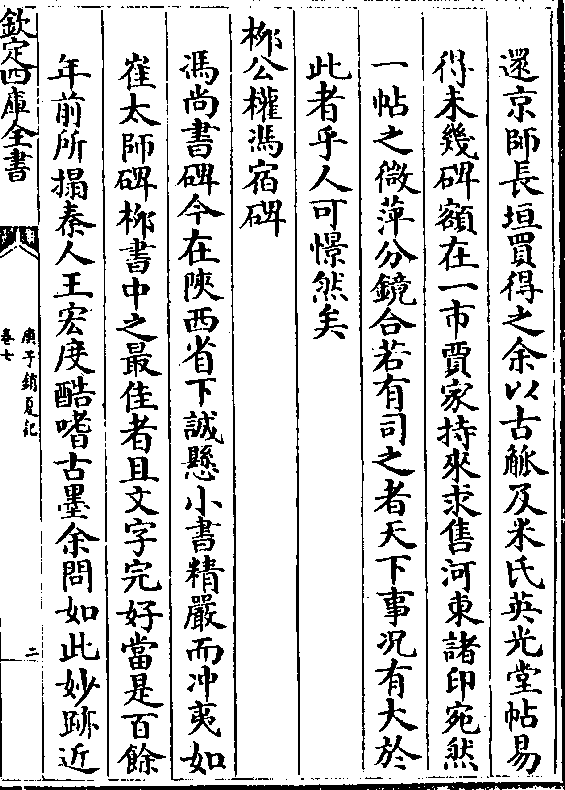 還京師長垣買得之余以古觚及米氏英光堂帖易
得未幾碑額在一市賈家持來求售河東諸印宛然
一帖之微萍分鏡合若有司之者天下事况有大於
此者乎人可憬然矣
柳公權馮宿碑
馮尚書碑今在陜西省下誠懸小書精嚴而冲夷如
崔太師碑柳書中之最佳者且文字完好當是百餘
年前所搨秦人王宏度酷嗜古墨余問如此妙跡近
欽定四庫全書
庚子銷夏記
卷七
二